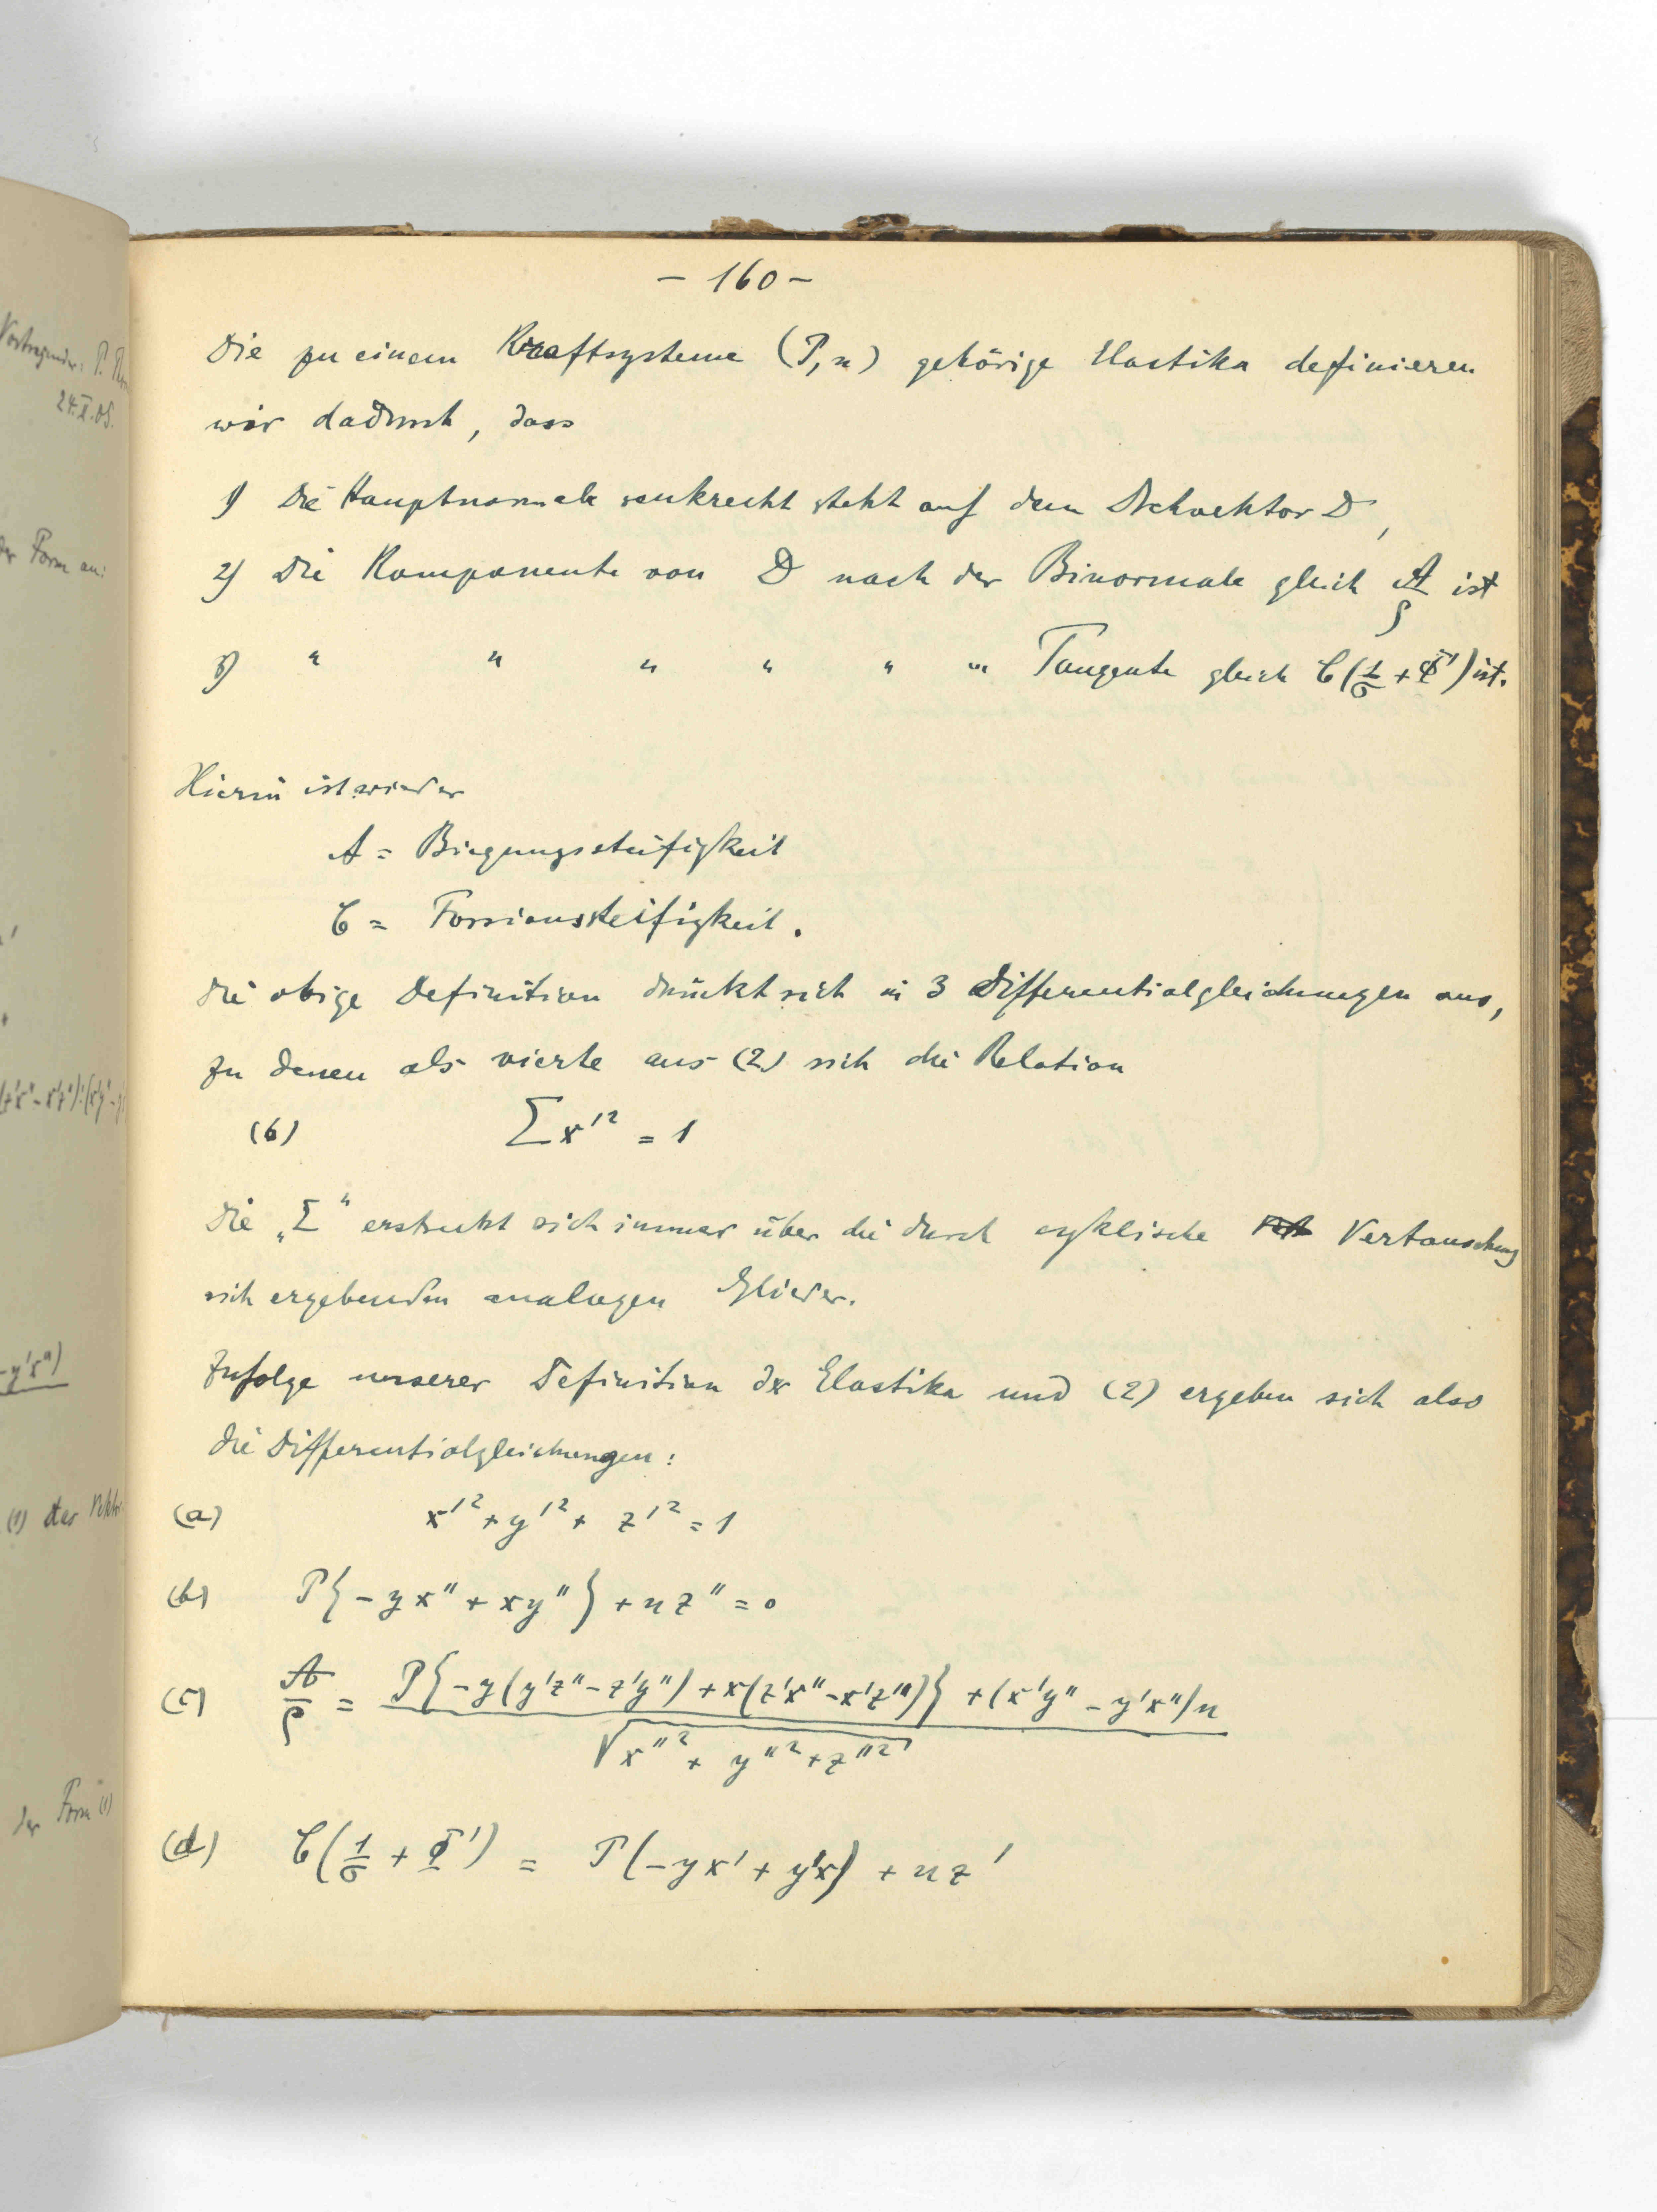 - 160 -
Die zu einem Kraftsysteme (P, n) gehörige Elastika definieren
wir dadurch, dass
1) Die Hauptnormale senkrecht steht auf dem Drehvektor D,
2) Die Komponente von D nach der Binormale gleich A/ρ ist
3) " " " " " " Tangente gleich C(1/σ + Φ') ist.
Hierin ist wieder
A = Biegungssteifigkeit
C = Torsionssteifigkeit.
Die obige Definition drückt sich in 3 Differentialgleichungen aus,
zu denen als vierte aus (2) sich die Relation
(6) Σx'² = 1
Die „Σ" erstreckt sich immer über die durch cyklische Vertauschung
sich ergebenden analogen Glieder.
Zufolge unserer Definition der Elastika und (2) ergeben sich also
die Differentialgleichungen:
(a) x'² + y'² + z'² = 1
(b) P{-yx'' + xy''} + nz'' = 0
(c) A/ρ = P{-y(y'z''-z'y'') + x(z'x''-x'z'')} + (x'y''-y'x'')n / √x''² + y''² + z''²
(d) C(1/σ + Φ') = P(-yx' + y'x) + nz'
24.X.05.
der Form an:
-y'x'')
(1) der
der Form (1)